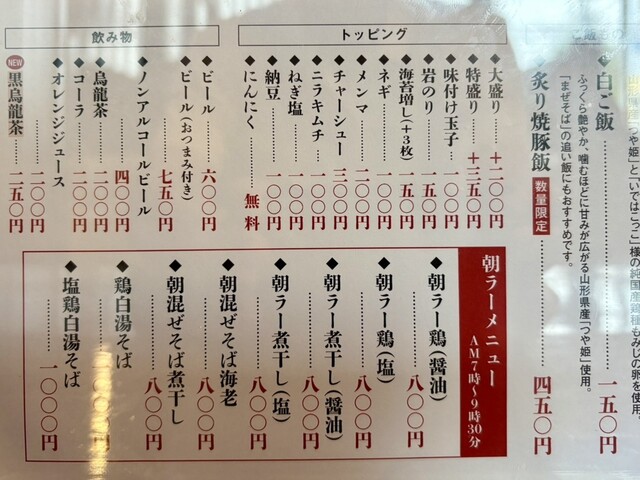 や姫」と「いではこっこ」様の純国産鶏種もみじの卵を使用。
ご飯もの
◆白ご飯 一五〇円
ふっくら艶やか、噛むほどに甘みが広がる山形県産「つや姫」使用。
「まぜそば」の追い飯にもおすすめです。
◆炙り焼豚飯 数量限定 四五〇円
トッピング
◆大盛り ＋二〇〇円
◆特盛り ＋三五〇円
◆味付け玉子 一〇〇円
◆岩のり 一五〇円
◆海苔増し(＋3枚) 一五〇円
◆ネギ 一〇〇円
◆メンマ 二〇〇円
◆チャーシュー 三〇〇円
◆ニラキムチ 一〇〇円
◆ねぎ塩 一〇〇円
◆納豆 一〇〇円
◆にんにく 無料
飲み物
◆ビール 六〇〇円
◆ビール(おつまみ付き) 七五〇円
◆ノンアルコールビール 四〇〇円
◆烏龍茶 二〇〇円
◆コーラ 二〇〇円
◆オレンジジュース 二〇〇円
NEW 黒烏龍茶 二五〇円
朝ラーメニュー AM7時～9時30分
◆朝ラー鶏(醤油) 八〇〇円
◆朝ラー鶏(塩) 八〇〇円
◆朝ラー煮干し(醤油) 八〇〇円
◆朝ラー煮干し(塩) 八〇〇円
◆朝混ぜそば海老 八〇〇円
◆朝混ぜそば煮干し 八〇〇円
◆鶏白湯そば 一〇〇〇円
◆塩鶏白湯そば 一〇〇〇円